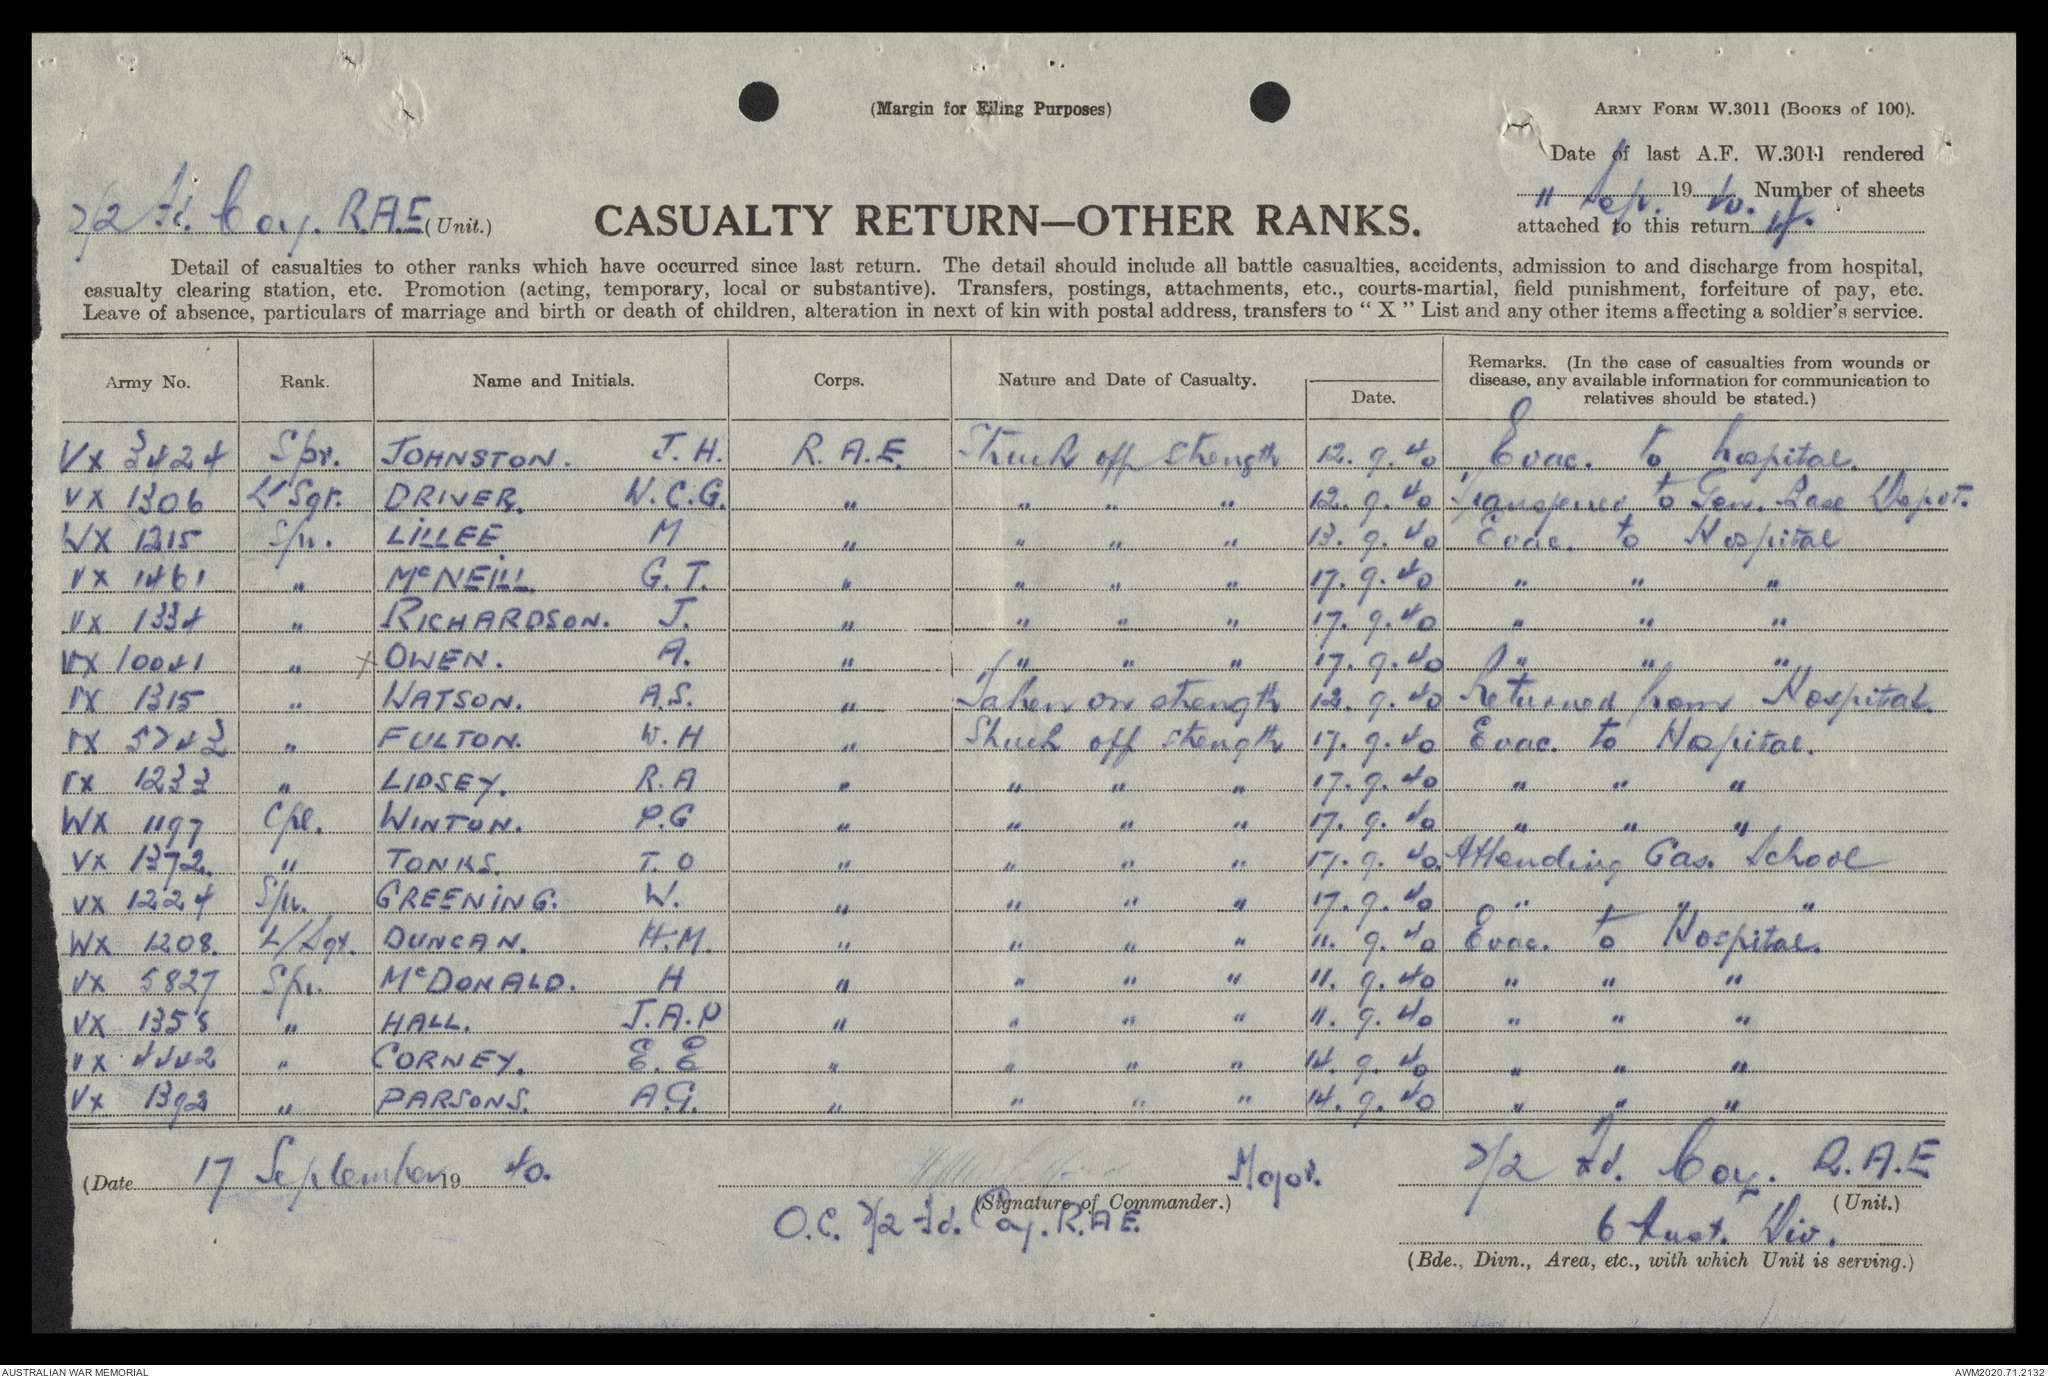 (Margin for Filing Purposes)
ARMY FORM W.3011 (BOOKS of 100).
Date of last A.F. W.3011 rendered
11 Sep. 19 40. Number of sheets
attached to this return
2/2 Fd. Coy. R.A.E (Unit.)
CASUALTY RETURN—OTHER RANKS.
Detail of casualties to other ranks which have occurred since last return. The detail should include all battle casualties, accidents, admission to and discharge from hospital,
casualty clearing station, etc. Promotion (acting, temporary, local or substantive). Transfers, postings, attachments, etc., courts-martial, field punishment, forfeiture of pay, etc.
Leave of absence, particulars of marriage and birth or death of children, alteration in next of kin with postal address, transfers to "X" List and any other items affecting a soldier's service.
Army No. Rank. Name and Initials. Corps. Nature and Date of Casualty. Date. Remarks. (In the case of casualties from wounds or
disease, any available information for communication to
relatives should be stated.)
VX 3424 Spr. JOHNSTON. J.H. R.A.E. Struck off strength 12.9.40 Evac. to hospital.
VX 1306 L/Sgt. DRIVER. W.C.G. " " " " 12.9.40 Transferred to Gen. Base Depot.
WX 1215 Spr. LILLEE M " " " " 13.9.40 Evac. to Hospital
VX 1461 " McNEILL. G.T. " " " " 17.9.40 " " "
VX 1334 " RICHARDSON. J. " " " " 17.9.40 " " "
VX 10041 " x OWEN. A. " " " " 17.9.40 " " "
VX 1315 " WATSON. A.S. " Taken on strength 12.9.40 Returned from Hospital.
VX 5743 " FULTON. W.H " Struck off strength 17.9.40 Evac. to Hospital.
VX 1233 " LIDSEY. R.A " " " " 17.9.40 " " "
WX 1197 Cpl. WINTON. P.G " " " " 17.9.40 " " "
VX 1372. " TONKS. T.O " " " " 17.9.40. Attending Gas. School
VX 1224 Spr. GREENING. W. " " " " 17.9.40 " " "
WX 1208. L/Sgt. DUNCAN. H.M. " " " " 11.9.40 Evac. to Hospital.
VX 5827 Spr. McDONALD. H " " " " 11.9.40 " " "
VX 1358 " HALL. J.A.P " " " " 11.9.40 " " "
VX 4442 " CORNEY. E.E " " " " 14.9.40 " " "
VX 1392 " PARSONS. A.G. " " " " 14.9.40 " " "
(Date 17 September 19 40.
Major.
(Signature of Commander.)
O.C. 2/2 Fd. Coy. R.A.E.
2/2 Fd. Coy. R.A.E
(Unit.)
6 Aust. Div.
(Bde., Divn., Area, etc., with which Unit is serving.)
AUSTRALIAN WAR MEMORIAL
AWM2020.71.2132